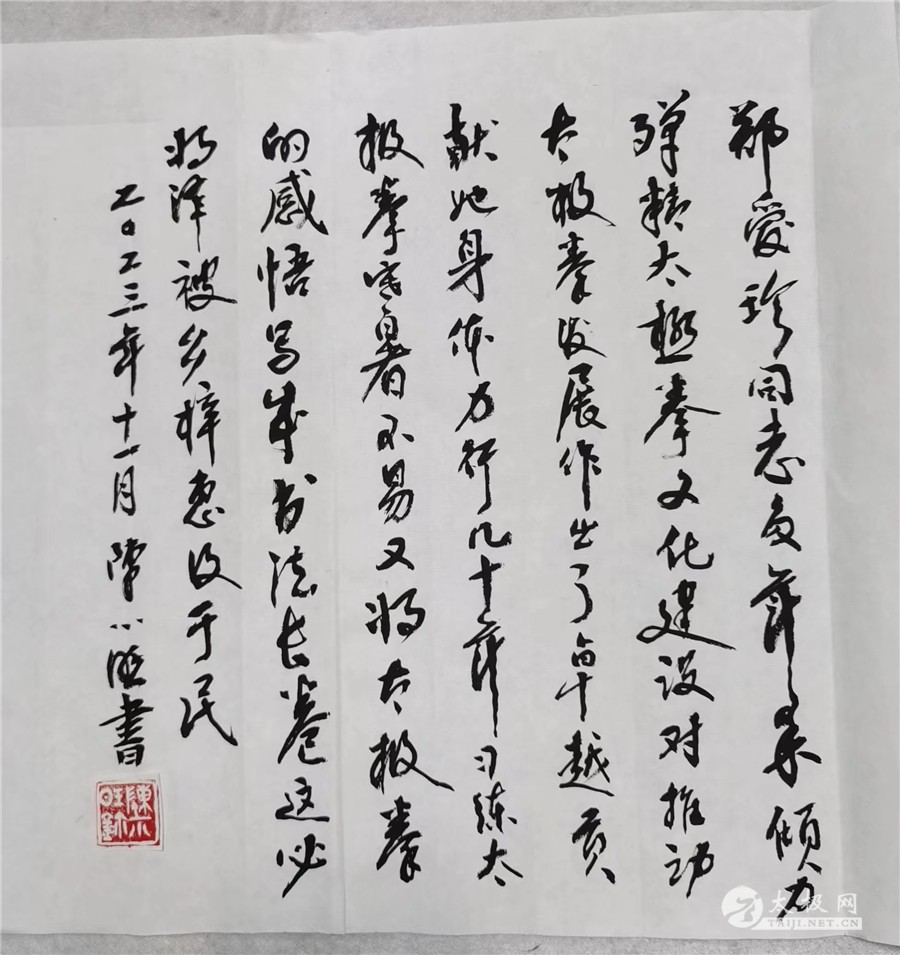 郑愛珍同志多年来倾力
殚精太極拳文化建设对推动
太极拳发展作出了卓越贡
献她身体力行几十年习练太
极拳寒暑不易又将太极拳
的感悟写成书法长卷这必
将泽被乡梓惠及于民
二〇二三年十一月陳小旺書
陳小旺鉥
太极网
TAIJI.NET.CN